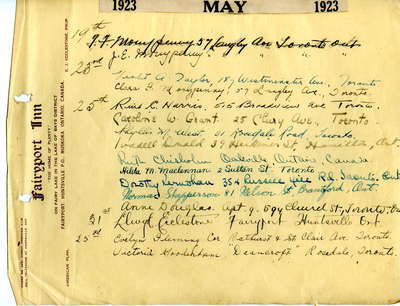 1923 MAY 1923
Fairyport Inn
"THE HOME OF PLENTY"
ON FAIRY LAKE IN THE LAKE OF BAYS DISTRICT
FAIRYPORT, HUNTSVILLE P.O., MUSKOKA, ONTARIO, CANADA
AMERICAN PLAN
19th F.F. Moneypenny 37 Langley Ave Toronto Ont
23rd J.E. Moneypenny " " " "
Taylor, 187 Westminster Ave., Toronto
Clara F. Moneypenny, 37 Langley Ave., Toronto.
25th C. Harris, 515 Broadview Ave Toronto.
Caroline W. Grant. 25 Ave., Toronto
West. 51 Rosedale Road, Toronto.
Donald 39 St., Hamilton, Ont.
Ruth Chisholm Oakville Ontario, Canada
Hilda M. MacLennan 2 Sultan St. Toronto
Dorothy 354 Russell Hill Rd. Toronto, Ont
Norman Shepperson Nelson St. Brantford, Ont.
Anne Douglas. Apt. 9. 594 Church St, Toronto, Ont
31 Lloyd Ecclestone Fairyport Huntsville Ont
25th Evelyn Fleming Cor Bathurst & St. Clair Ave Toronto.
Victoria Gooderham "Deancroft" Rosedale, Toronto.